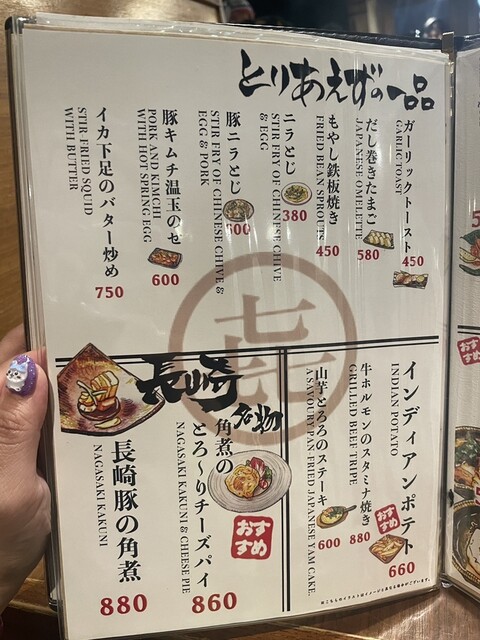 とりあえずの一品
ガーリックトースト
GARLIC TOAST
450
だし巻きたまご
JAPANESE OMELETTE
580
もやし鉄板焼き
FRIED BEAN SPROUTS
450
ニラとじ
STIR FRY OF CHINESE CHIVE
& EGG
380
豚ニラとじ
STIR FRY OF CHINESE CHIVE &
EGG & PORK
600
豚キムチ温玉のせ
PORK AND KIMCHI
WITH HOT SPRING EGG
600
イカ下足のバター炒め
STIR-FRIED SQUID
WITH BUTTER
750
インディアンポテト
INDIAN POTATO
おすすめ
660
牛ホルモンのスタミナ焼き
GRILLED BEEF TRIPE
880
山芋とろろのステーキ
A SAVOURY PAN-FRIED JAPANESE YAM CAKE.
600
※こちらのイラストはイメージと異なる場合がございます。
長崎名物
角煮の
とろ〜りチーズパイ
NAGASAKI KAKUNI & CHEESE PIE
おすすめ
860
長崎豚の角煮
NAGASAKI KAKUNI
880
おすすめ